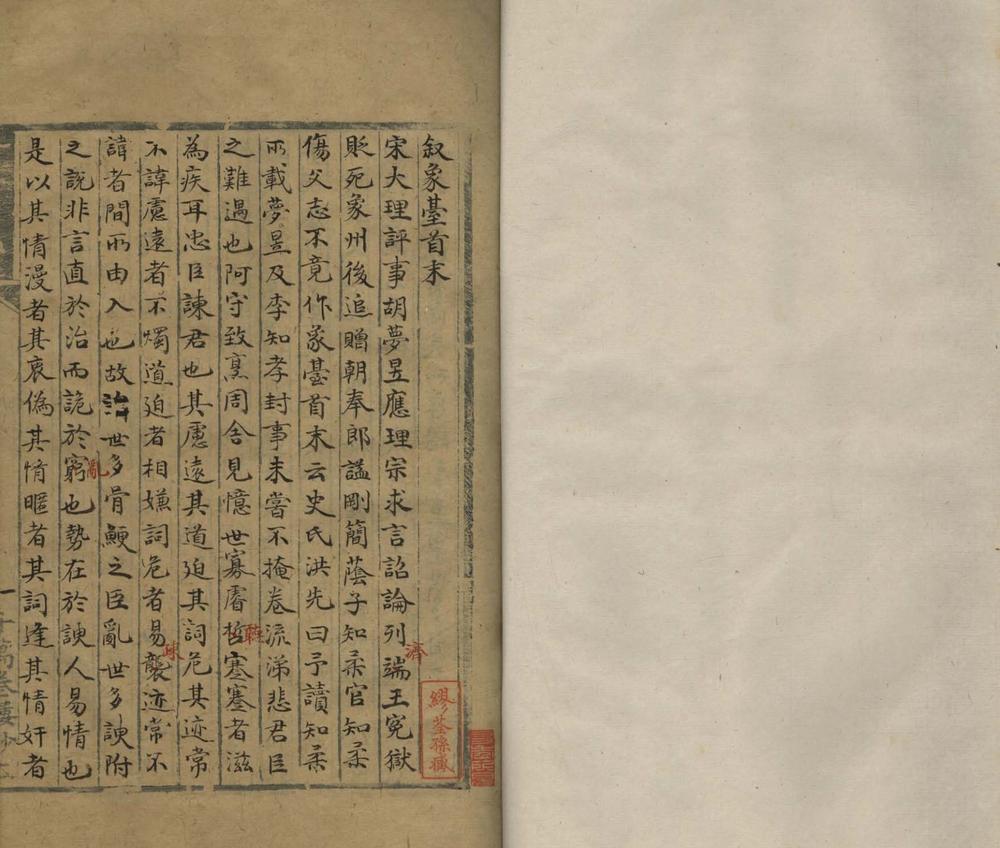 叙象臺首末
宋大理評事胡夢昱應理宗求言詔論列端王寃獄
濟
貶死象州後追贈朝奉郎諡剛簡蔭子知柔官知柔
傷父志不竟作象臺首末云史氏洪先曰予讀知柔
所載夢昱及李知孝封事未嘗不掩卷流涕悲君臣
之難遇也阿守致烹周舍見憶世寡睿哲蹇蹇者滋
為疾耳忠臣諫君也其慮遠其道廹其詞危其迹常
不諱慮遠者不燭道廹者相嫌詞危者易襲迹常不
諱者間所由入也故治世多骨鯁之臣亂世多諛附
亂
之說非言直於治而詭於窮也勢在於諛人易情也
是以其情漫者其衷僞其情暱者其詞逢其情奸者
繆荃孫藏